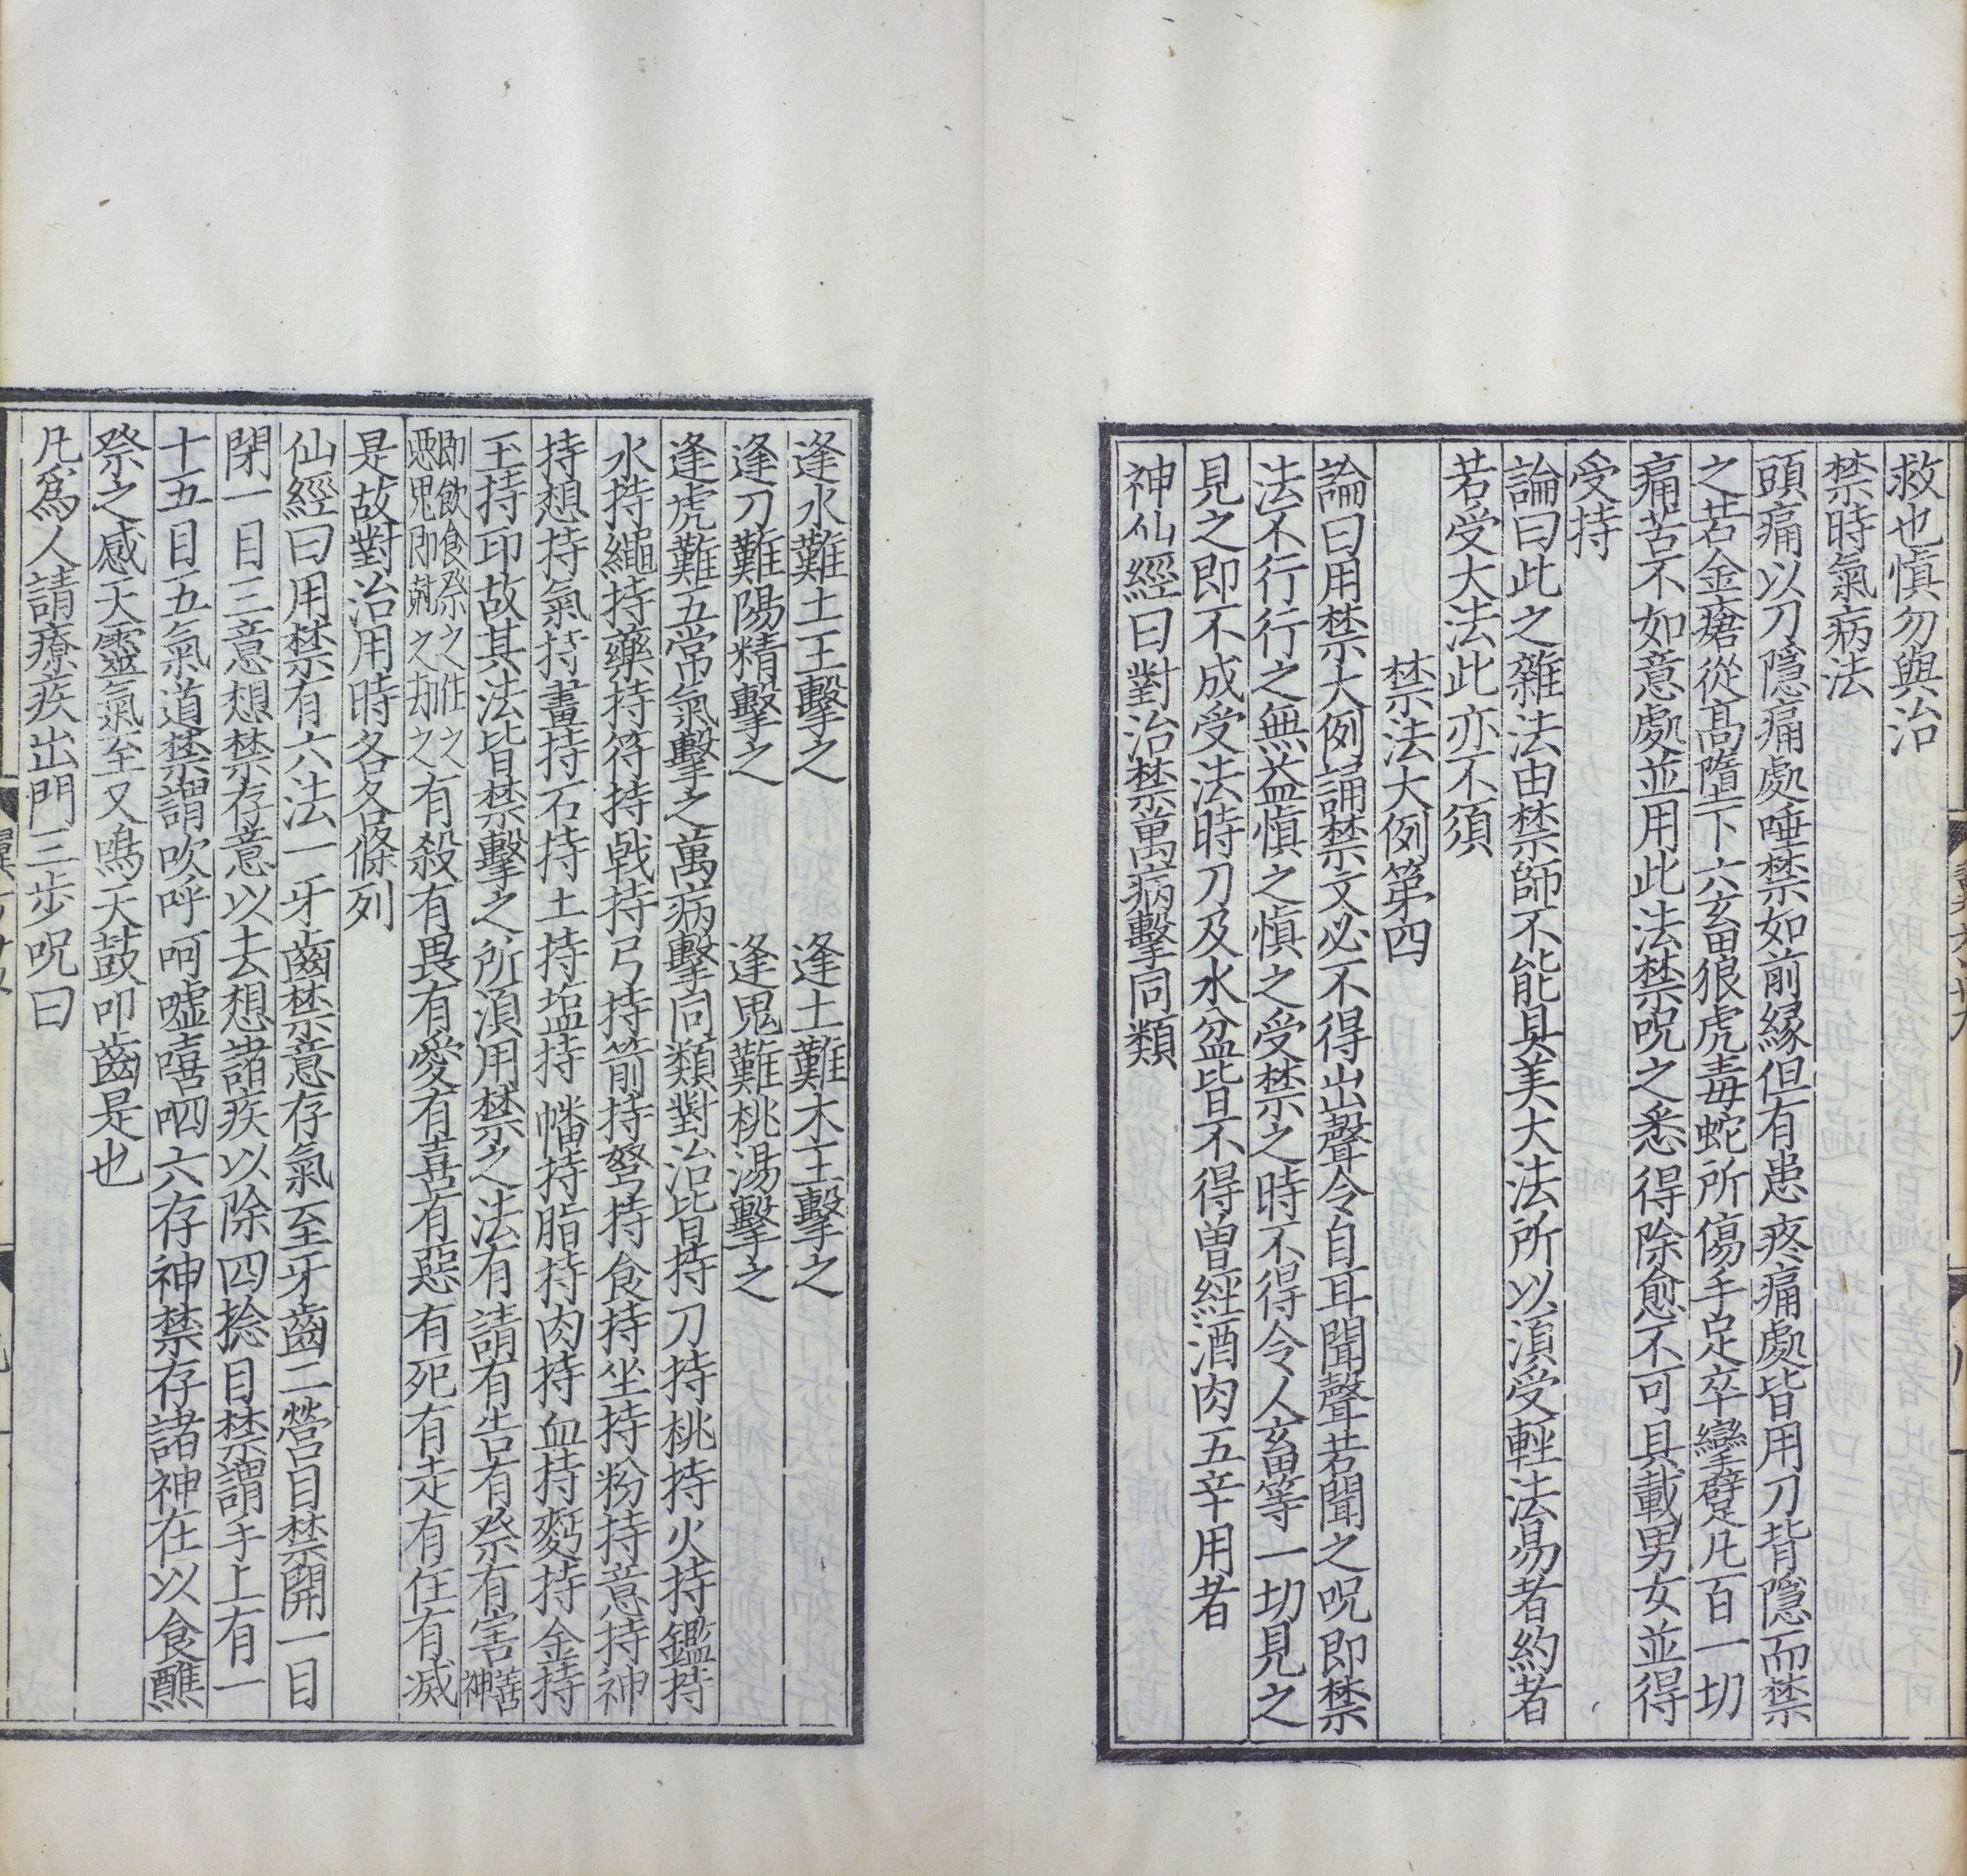 救也慎勿與治
禁時氣病法
頭痛以刀隱痛處唾禁如前緣但有患疼痛處皆用刀背隱而禁
之苦金瘡從高墮下六畜狼虎毒蛇所傷手足卒攣躄凡百一切
痛苦不如意處並用此法禁呪之悉得除愈不可具載男女並得
受持
論曰此之雜法由禁師不能具美大法所以湏受輕法易者約者
若受大法此亦不須
禁法大例第四
論曰用禁大例誦禁文必不得出聲令自耳聞聲若聞之呪即禁
法不行行之無益慎之慎之受禁之時不得令人畜等一切見之
見之即不成受法時刀及水盆皆不得曽經酒肉五辛用者
神仙經曰對治禁萬病擊同類
逢水難土王擊之　逢土難木王擊之
逢刀難陽精擊之　逢鬼難桃湯擊之
逢虎難五常氣擊之萬病擊同類對治皆持刀持桃持火持鑑持
水持繩持藥持符持戟持弓持箭持弩持食持坐持粉持意持神
持想持氣持畫持石持土持塩持幡持脂持肉持血持麫持金持
玉持印故其法皆禁擊之所湏用禁之法有請有告有祭有害善神
即飲食祭之任之惡鬼即
之刧之有殺有畏有愛有喜有惡有死有走有住有滅
是故對治用時各各條列
仙經曰用禁有六法一牙齒禁意存氣至牙齒二營目禁開一目
閉一目三意想禁存意以去想諸疾以除四捻目禁謂手上有一
十五目五氣道禁謂吹呼呵噓嘻呬六存神禁存諸神在以食醮
祭之感天靈氣至又鳴天鼓叩齒是也
凡爲人請療疾出門三步呪曰